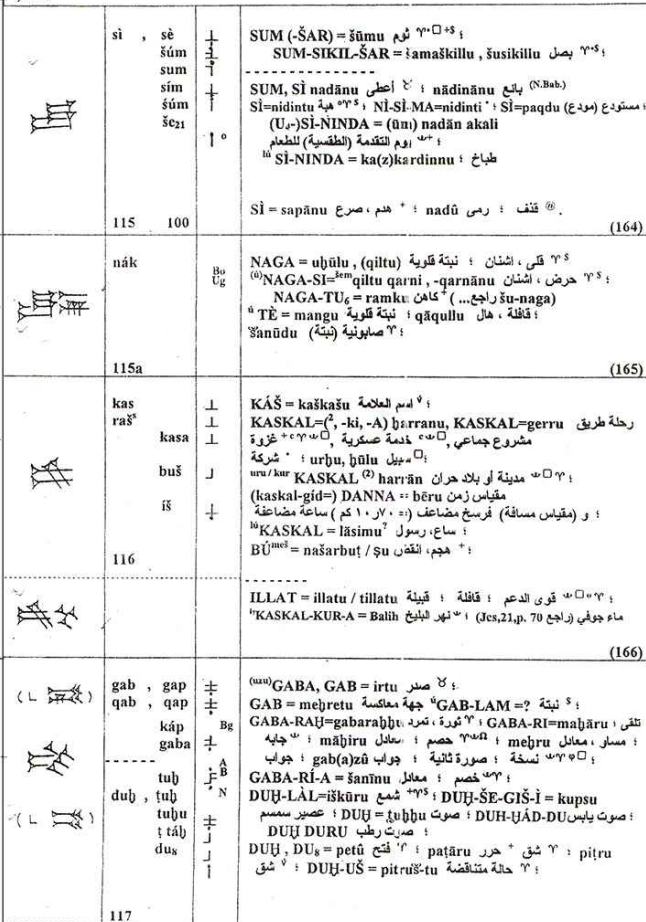 sì , sè
šúm
sum
sím
šúm
še21
115 100
SUM (-ŠAR) = šūmu ثوم
SUM-SIKIL-ŠAR = šamaškillu , šusikillu بصل
SUM, SÌ nadānu أعطى ؛ nādinānu بائع (N.Bab.)
SÌ=nidintu هبة ؛ NÌ-SÌ-MA=nidinti ؛ SÌ=paqdu مستودع (مودع) ؛
(U4-)SÌ-NINDA = (ūm) nadān akali
يوم التقدمة (الطقسية) للطعام ؛
lú SÌ-NINDA = ka(z)kardinnu ؛ طباخ
SÌ = sapānu هدم ، صرع ؛ nadû رمى ؛ قذف .
(164)
nák
Bo
Ug
115a
NAGA = uḫūlu , (qiltu) قلى ، اشنان ؛ نبتة قلوية
(ú)NAGA-SI=šem qiltu qarni , -qarnānu حرض ، اشنان ؛
NAGA-TU6 = ramku كاهن (راجع ... šu-naga)
ú TÈ = mangu نبتة قلوية ؛ qāqullu قاقلة ، هال ؛
šanūdu صابونية (نبتة) ؛
(165)
kas
rašs
kasa
buš
íš
116
KÁŠ = kaškašu اسم العلامة ؛
KASKAL=(2, -ki, -A) ḫarranu, KASKAL=gerru رحلة طريق
مشروع جماعي , خدمة عسكرية , غزوة
؛ urḫu, ḫūlu سبيل ؛ شركة
uru / kur KASKAL (2) harrān مدينة أو بلاد حران ؛
(kaskal-gíd=) DANNA = bēru مقياس زمن
؛ و (مقياس مسافة) فرسخ مضاعف (= ٧٠ر١٠ كم) ساعة مضاعفة
lú KASKAL = lāsimu? ساع، رسول ؛
BÚmeš = našarbuṭ / ṣu هجم، انقض ؛
ILLAT = illatu / tillatu قوى الدعم ؛ قافلة ؛ قبيلة ؛
í7KASKAL-KUR-A = Balih نهر البليخ ؛ (Jcs,21,p. 70 راجع) ماء جوفي
(166)
gab , gap
qab , qap
káp Bg
gaba
tuḫ
duḫ , ṭuḫ
tuḫu
ṭ táḫ
du8
117
(uzu)GABA, GAB = irtu صدر ؛
GAB = meḫretu جهة معاكسة úGAB-LAM =? نبتة ؛
GABA-RAḪ=gabaraḫḫu ثورة ، تمرد ؛ GABA-RI=maḫāru تلقى ؛
جابه ؛ māḫiru خصم ؛ معادل ؛ meḫru مسار ، معادل ؛
نسخة ؛ صورة ثانية ؛ جواب gab(a)zû ؛ جواب
GABA-RÍ-A = šanīnu خصم ؛ معادل ؛
DUḪ-LÀL=iškūru شمع ؛ DUḪ-ŠE-GIŠ-Ì = kupsu
عصير سمسم ؛ DUḪ = ṭuḫḫu صوت ؛ DUH-ḪÁD-DU صوت يابس ؛
DUḪ DURU صوت رطب ؛
DUḪ , DU8 = petû فتح ؛ paṭāru شق ، حرر ؛ piṭru
شق ؛ DUḪ-UŠ = pitruš-tu حالة متناقضة ؛